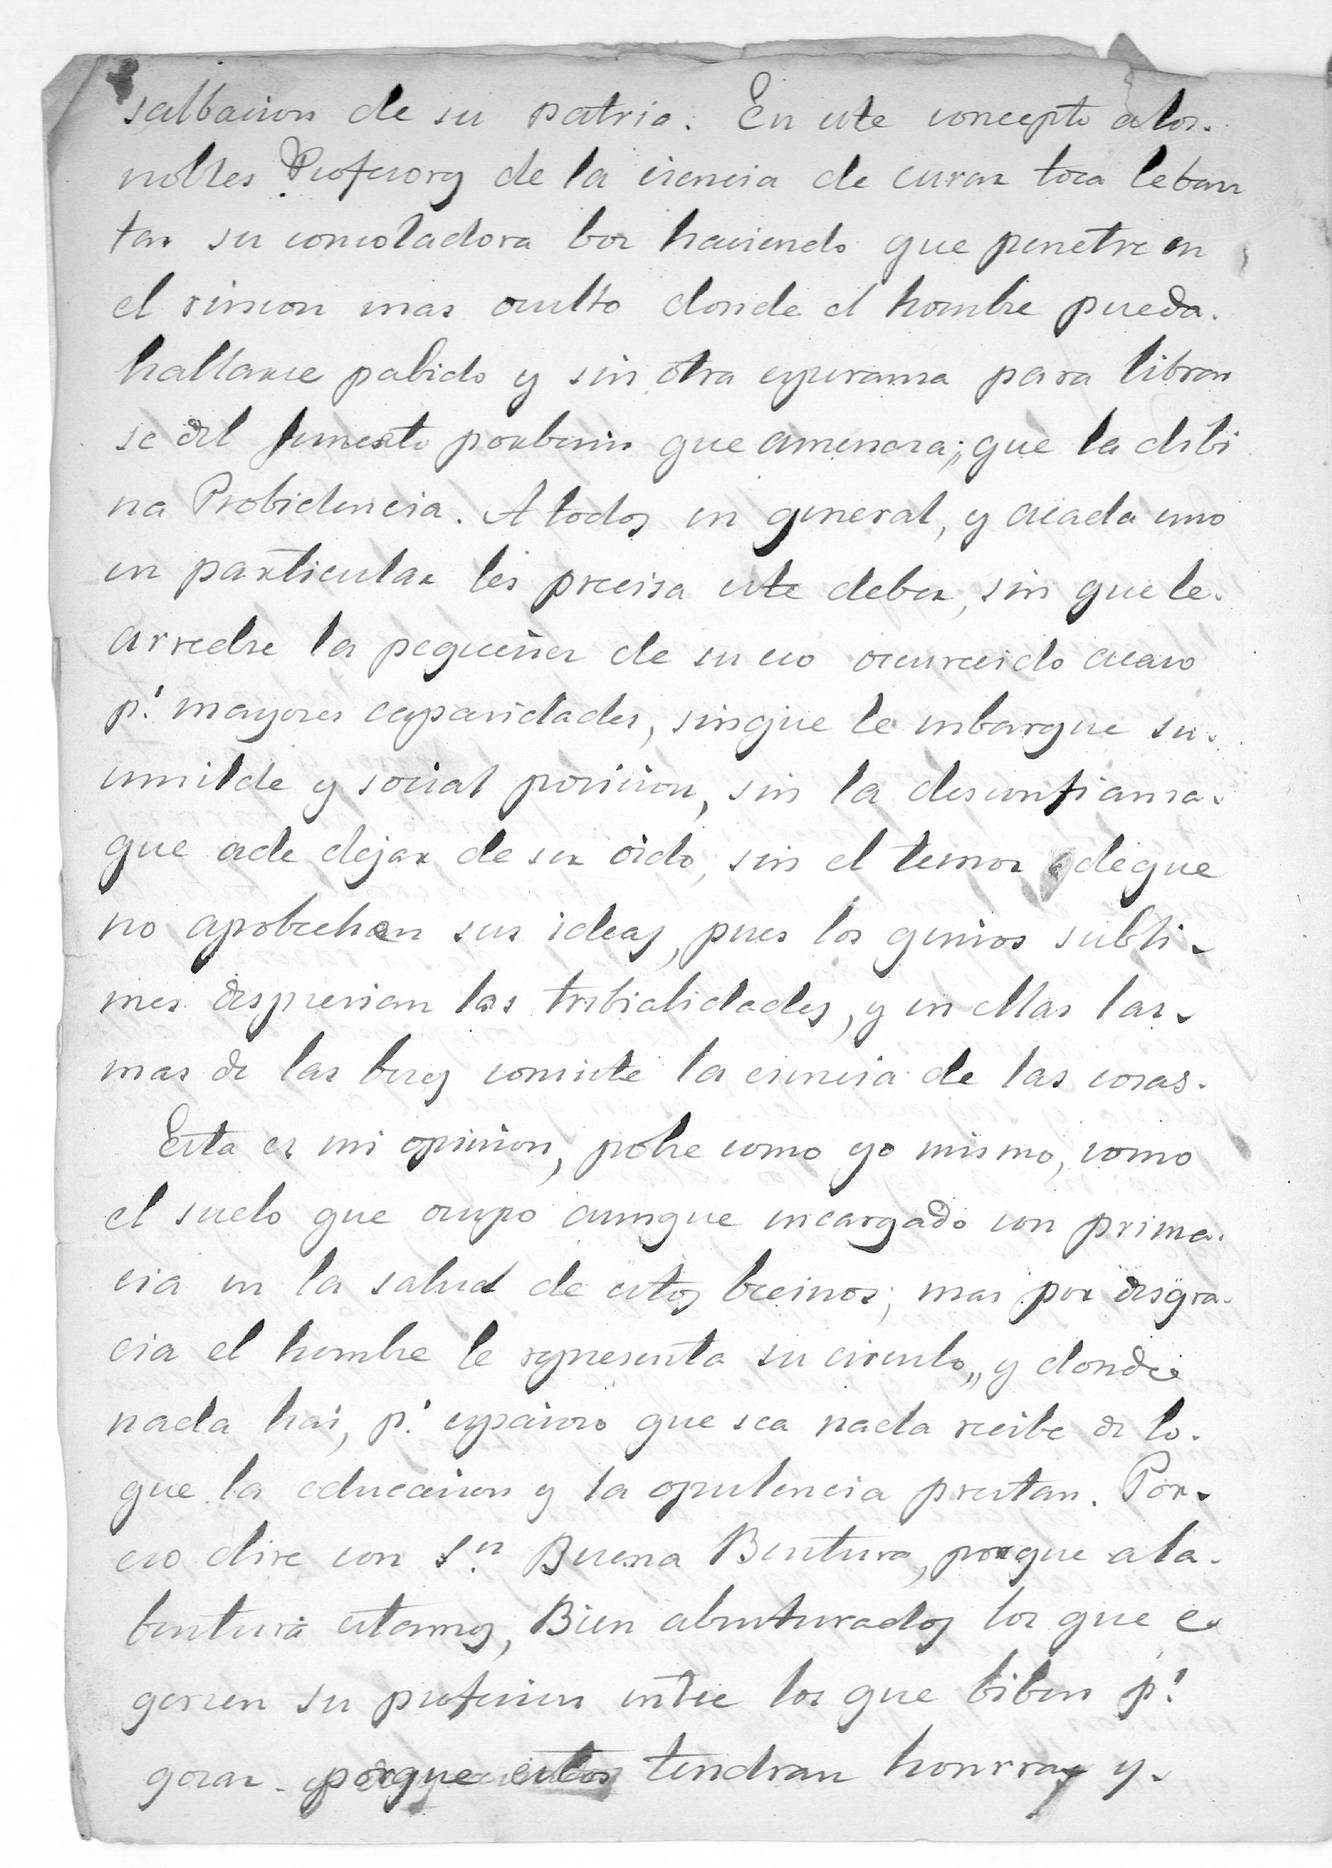 salbacion de su patria. En este concepto a los.
nobles Profesores de la ciencia de curar toca leban
tar su consoladora boz haciendo que penetre en
el rincon mas oculto donde el hombre pueda.
hallarse pabido y sin otra esperanza para librar
se del funesto porbenir que amenaza; que la dibi
na Probidencia. A todos en general, y acada uno
en particular les precisa este deber, sin que le.
arredre la pequeñez de su eco ocurecido acaso
p.r mayores capacidades, sinque le enbargue su.
umilde y social posicion, sin la desconfianza.
que ade dejar de ser oido, sin el temor deque
no aprobechen sus ideas, pues los genios subli-
mes desprecian las tribialidades, y en ellas las.
mas de las beces consiste la esencia de las cosas.
Esta es mi opinion, pobre como yo mismo, como
el suelo que ocupo aunque encargado con prima.
cia en la salud de estos becinos; mas por desgra.
cia el hombre le representa su circulo,, y donde
nada hai, p.r espacioso que sea nada recibe de lo.
que la educacion y la opulencia prestan. Por.
eso dire con S.n Buena Bentura, porque a la.
bentura estamos, Bien abenturados los que e
gercen su profesion entre los que biben p.r
gozar. porque estos tendran honrras y.